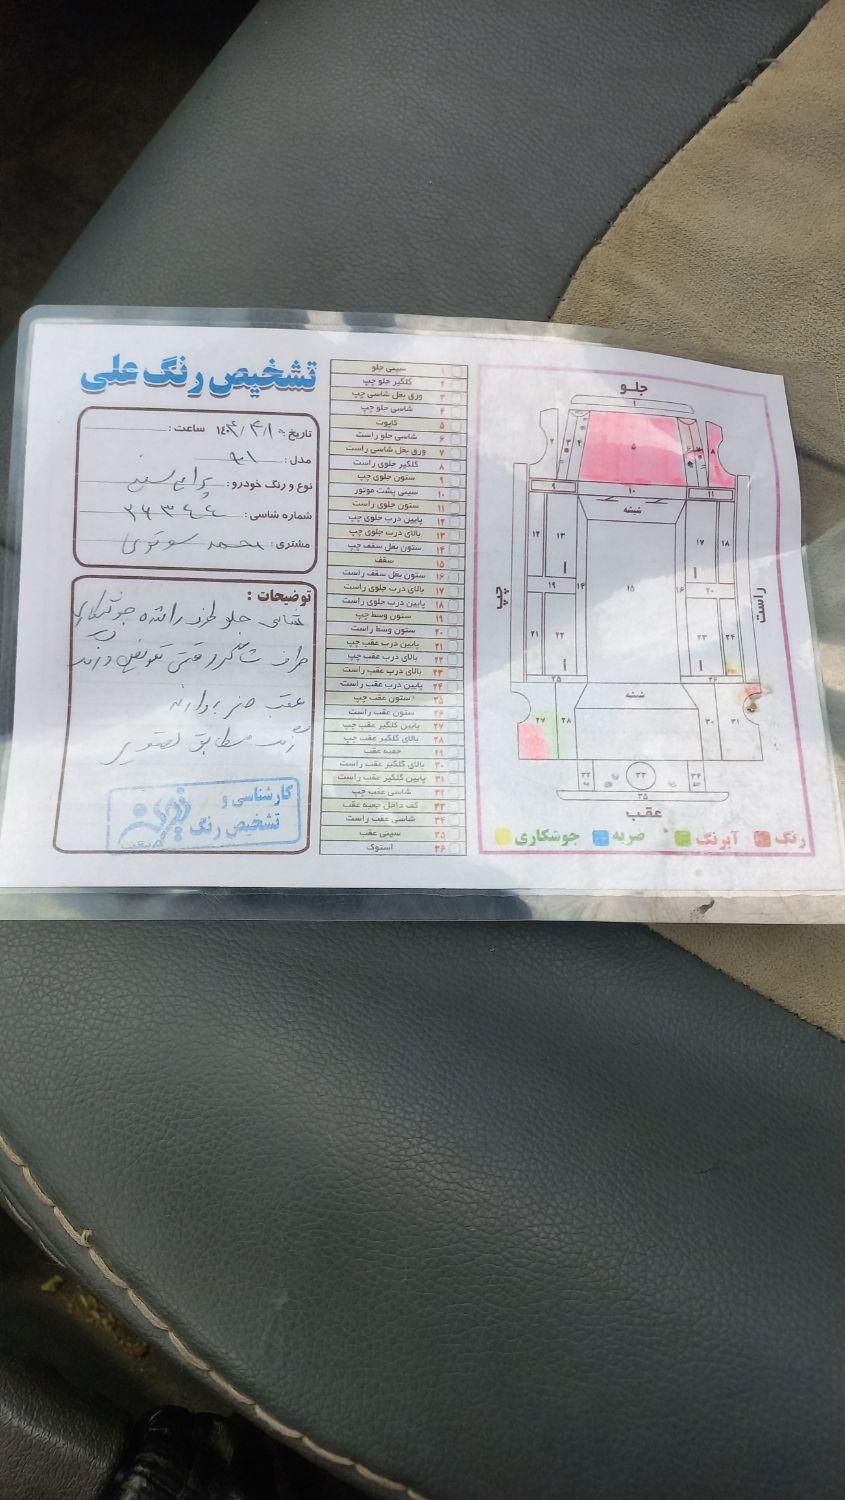 تشخیص رنگ علی
تاریخ: ۱۴۰۴/۴/۱۰ ساعت:
مدل: ۹۱
نوع و رنگ خودرو: پراید سفید
شماره شاسی:
مشتری: محمد
توضیحات:
شاسی جلو طرف راننده جوشکاری
طرف شاگرد رقمی تعویض
عقب ضربه دارد
مطابق تصویر
کارشناسی و
تشخیص رنگ
۱ سینی جلو
۲ گلگیر جلو چپ
۳ ورق بغل شاسی چپ
۴ شاسی جلو چپ
۵ کاپوت
۶ شاسی جلو راست
۷ ورق بغل شاسی راست
۸ گلگیر جلوی راست
۹ ستون جلوی چپ
۱۰ سینی پشت موتور
۱۱ ستون جلوی راست
۱۲ پایین درب جلوی چپ
۱۳ بالای درب جلوی چپ
۱۴ ستون بغل سقف چپ
۱۵ سقف
۱۶ ستون بغل سقف راست
۱۷ بالای درب جلوی راست
۱۸ پایین درب جلوی راست
۱۹ ستون وسط چپ
۲۰ ستون وسط راست
۲۱ پایین درب عقب چپ
۲۲ بالای درب عقب چپ
۲۳ بالای درب عقب راست
۲۴ پایین درب عقب راست
۲۵ ستون عقب چپ
۲۶ ستون عقب راست
۲۷ پایین گلگیر عقب چپ
۲۸ بالای گلگیر عقب چپ
۲۹ جعبه عقب
۳۰ بالای گلگیر عقب راست
۳۱ پایین گلگیر عقب راست
۳۲ شاسی عقب چپ
۳۳ کف داخل جعبه عقب
۳۴ شاسی عقب راست
۳۵ سینی عقب
۳۶ استوک
جلو
۱
۲ ۳ ۴ ۵ ۶ ۷ ۸
۹ ۱۰ ۱۱
شیشه
۱۲ ۱۳ ۱۷ ۱۸
چپ ۱۴ ۱۵ ۱۶ راست
۱۹ ۲۰
۲۱ ۲۲ ۲۳ ۲۴
۲۵ ۲۶
شیشه
۲۷ ۲۸ ۳۰ ۳۱
۳۲ ۳۳ ۳۴
۳۵
عقب
رنگ آبرنگ ضربه جوشکاری